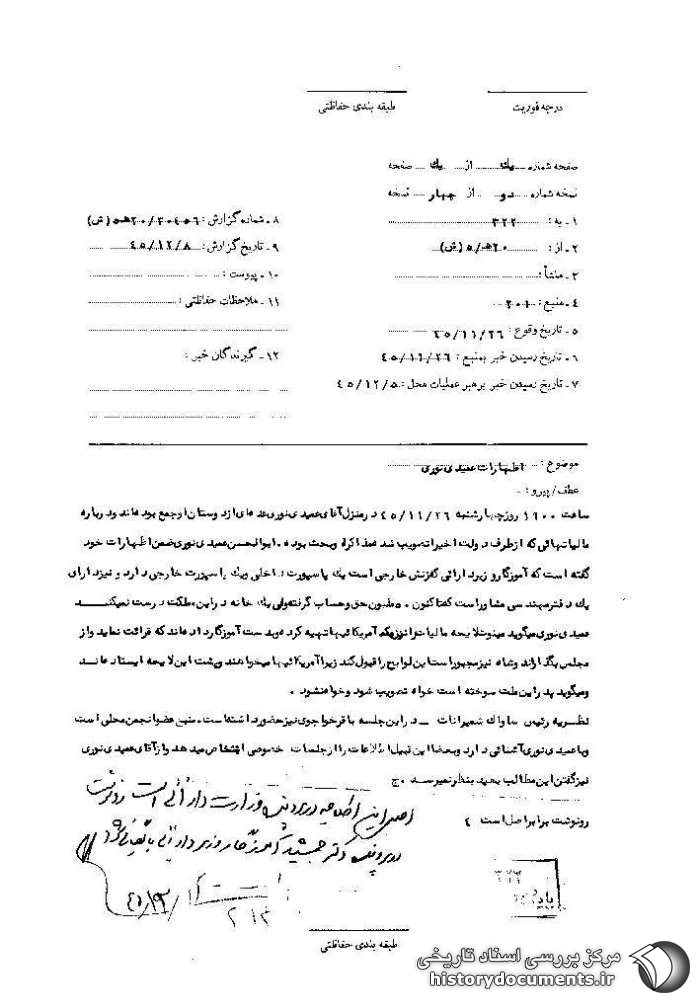 درجه فوریت
طبقه بندی حفاظتی
صفحه شماره یک از یک صفحه
نسخه شماره دو از چهار نسخه
۱ـ به : ۳۲۲
۲ـ از : ۲۰هـ/۵ (ش)
۳ـ منشأ :
۴ـ منبع :
۵ـ تاریخ وقوع : ۴۵/۱۱/۲۶
۶ـ تاریخ رسیدن خبر بمنبع : ۴۵/۱۱/۲۶
۷ـ تاریخ رسیدن خبر برهبر عملیات محل : ۴۵/۱۲/۵
۸ـ شماره گزارش :
۹ـ تاریخ گزارش : ۴۵/۱۲/۸
۱۰ـ پیوست :
۱۱ـ ملاحظات حفاظتی :
۱۲ـ گیرندگان خبر :
موضوع : اظهارات عمیدی نوری
عطف/پیرو :
ساعت ۱۹۰۰ روز چهارشنبه ۴۵/۱۱/۲۶ در منزل آقای عمیدی نوری عده ای از دوستان او جمع بوده اند و درباره
مالیاتهائی که از طرف دولت اخیرا تصویب شد مذاکره و بحث بوده . ابوالحسن عمیدی نوری ضمن اظهارات خود
گفته است که آموزگار وزیر دارائی مغزش خارجی است یک پاسپورت داخلی ویک پاسپورت خارجی دارد و نیز دارای
یک دفتر مهندسی مشاور است که تاکنون ۵۰ میلیون حق و حساب گرفته ولی یک خانه در این مملکت درست نمیکند
عمیدی نوری میگوید لایحه مالیات را نزدیکه آمریکائیها تهیه کرده و بدست آموزگار داده اند که قرائت نماید و از
مجلس بگذراند و شاه نیز مجبور است این لوایح را قبول کند زیرا آمریکائیها میخواهند و پشت این لایحه ایستاده اند
و میگوید پدر این ملت سوخته است خواه تصویب شود و خواه نشود .
نظریه رئیس ساواک شمیرانات ـ در این جلسه باقر خواجوی نیز حضور داشته است . منبع عضو انجمن محلی است
و با عمیدی نوری آشنائی دارد و بعضا این قبیل اطلاعات را از جلسات خصوصی میدهد و از آقای عمیدی نوری
نیز گفتن این مطالب بعید بنظر نمیرسد . ج
رونوشت برابر اصل است
اصل این اطلاعیه در پرونده وزارت دارائی است رونوشت
در پرونده دکتر جمشید آموزگار وزیر دارائی بایگانی شود
۳۲۲
طبقه بندی حفاظتی
مرکز بررسی اسناد تاریخی
historydocuments.ir